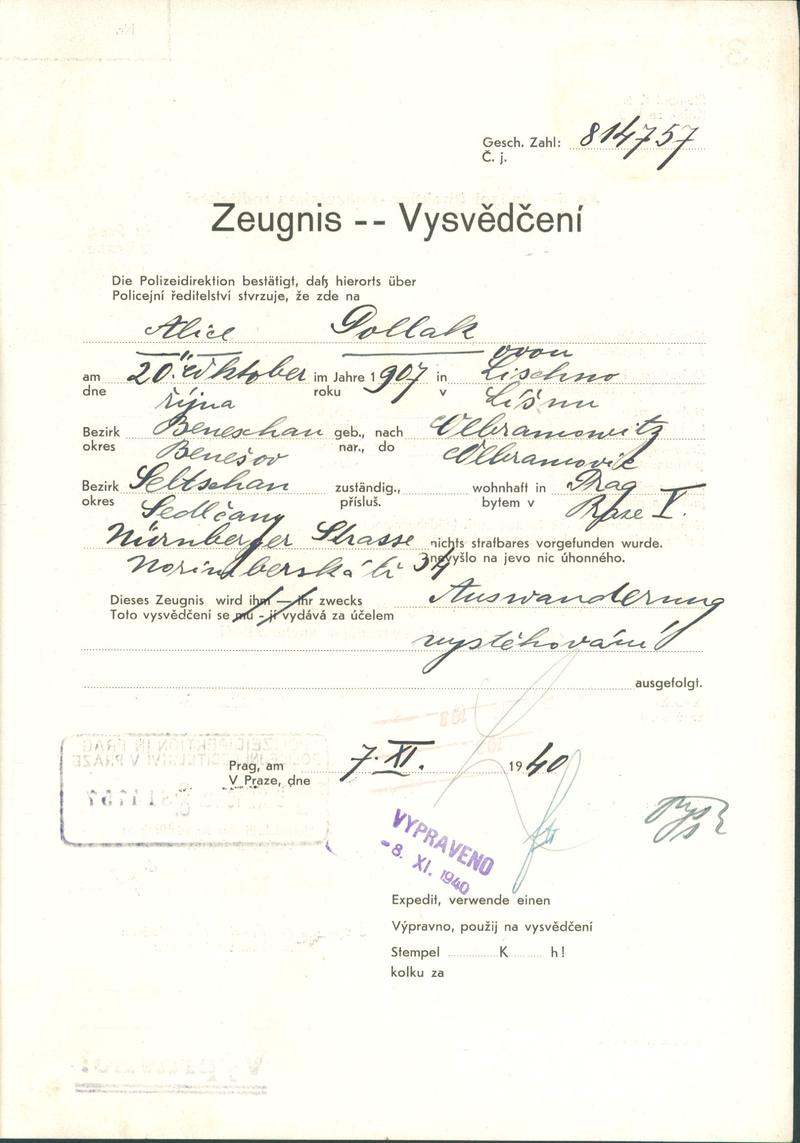 Gesch. Zahl: 814757
Č. j.
Zeugnis -- Vysvědčení
Die Polizeidirektion bestätigt, daß hierorts über
Policejní ředitelství stvrzuje, že zde na
Alice Pollak
ovou
am 20. Oktober im Jahre 1907 in Lischno
dne října roku v Líšnu
Bezirk Beneschau geb., nach Olbramowitz
okres Benešov nar., do Olbramovic
Bezirk Seltschan zuständig., wohnhaft in Prag
okres Sedlčany přísluš. bytem v Praze V.
Nürnberger Strasse nichts strafbares vorgefunden wurde.
Norimberská tř 34 nevyšlo na jevo nic úhonného.
Dieses Zeugnis wird ihm — ihr zwecks Auswanderung
Toto vysvědčení se mu - jí vydává za účelem
vystěhování
ausgefolgt.
Prag, am 7. XI. 1940
V Praze, dne
VYPRAVENO
-8. XI. 1940
Expedit, verwende einen
Výpravno, použij na vysvědčení
Stempel K h!
kolku za